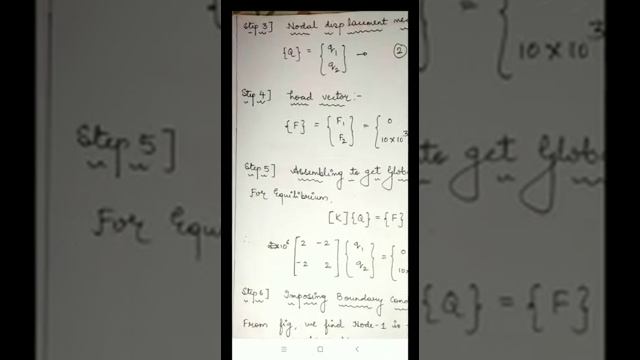 Step 3] Nodal displacement
{Q} = {q1 q2} → (2)
Step 4] Load vector :-
{F} = {F1 F2} = {0 10×10³
Step 5] Assembling to get Glob
For Equilibrium,
[K]{Q} = {F}
2×10⁶ [2 -2 -2 2] {q1 q2} = {0 10
Step 6] Imposing Boundary Con
From fig, we find Node-1 is
10×10³
Step 5]
to get Glob
For Equi
{Q} = {F}